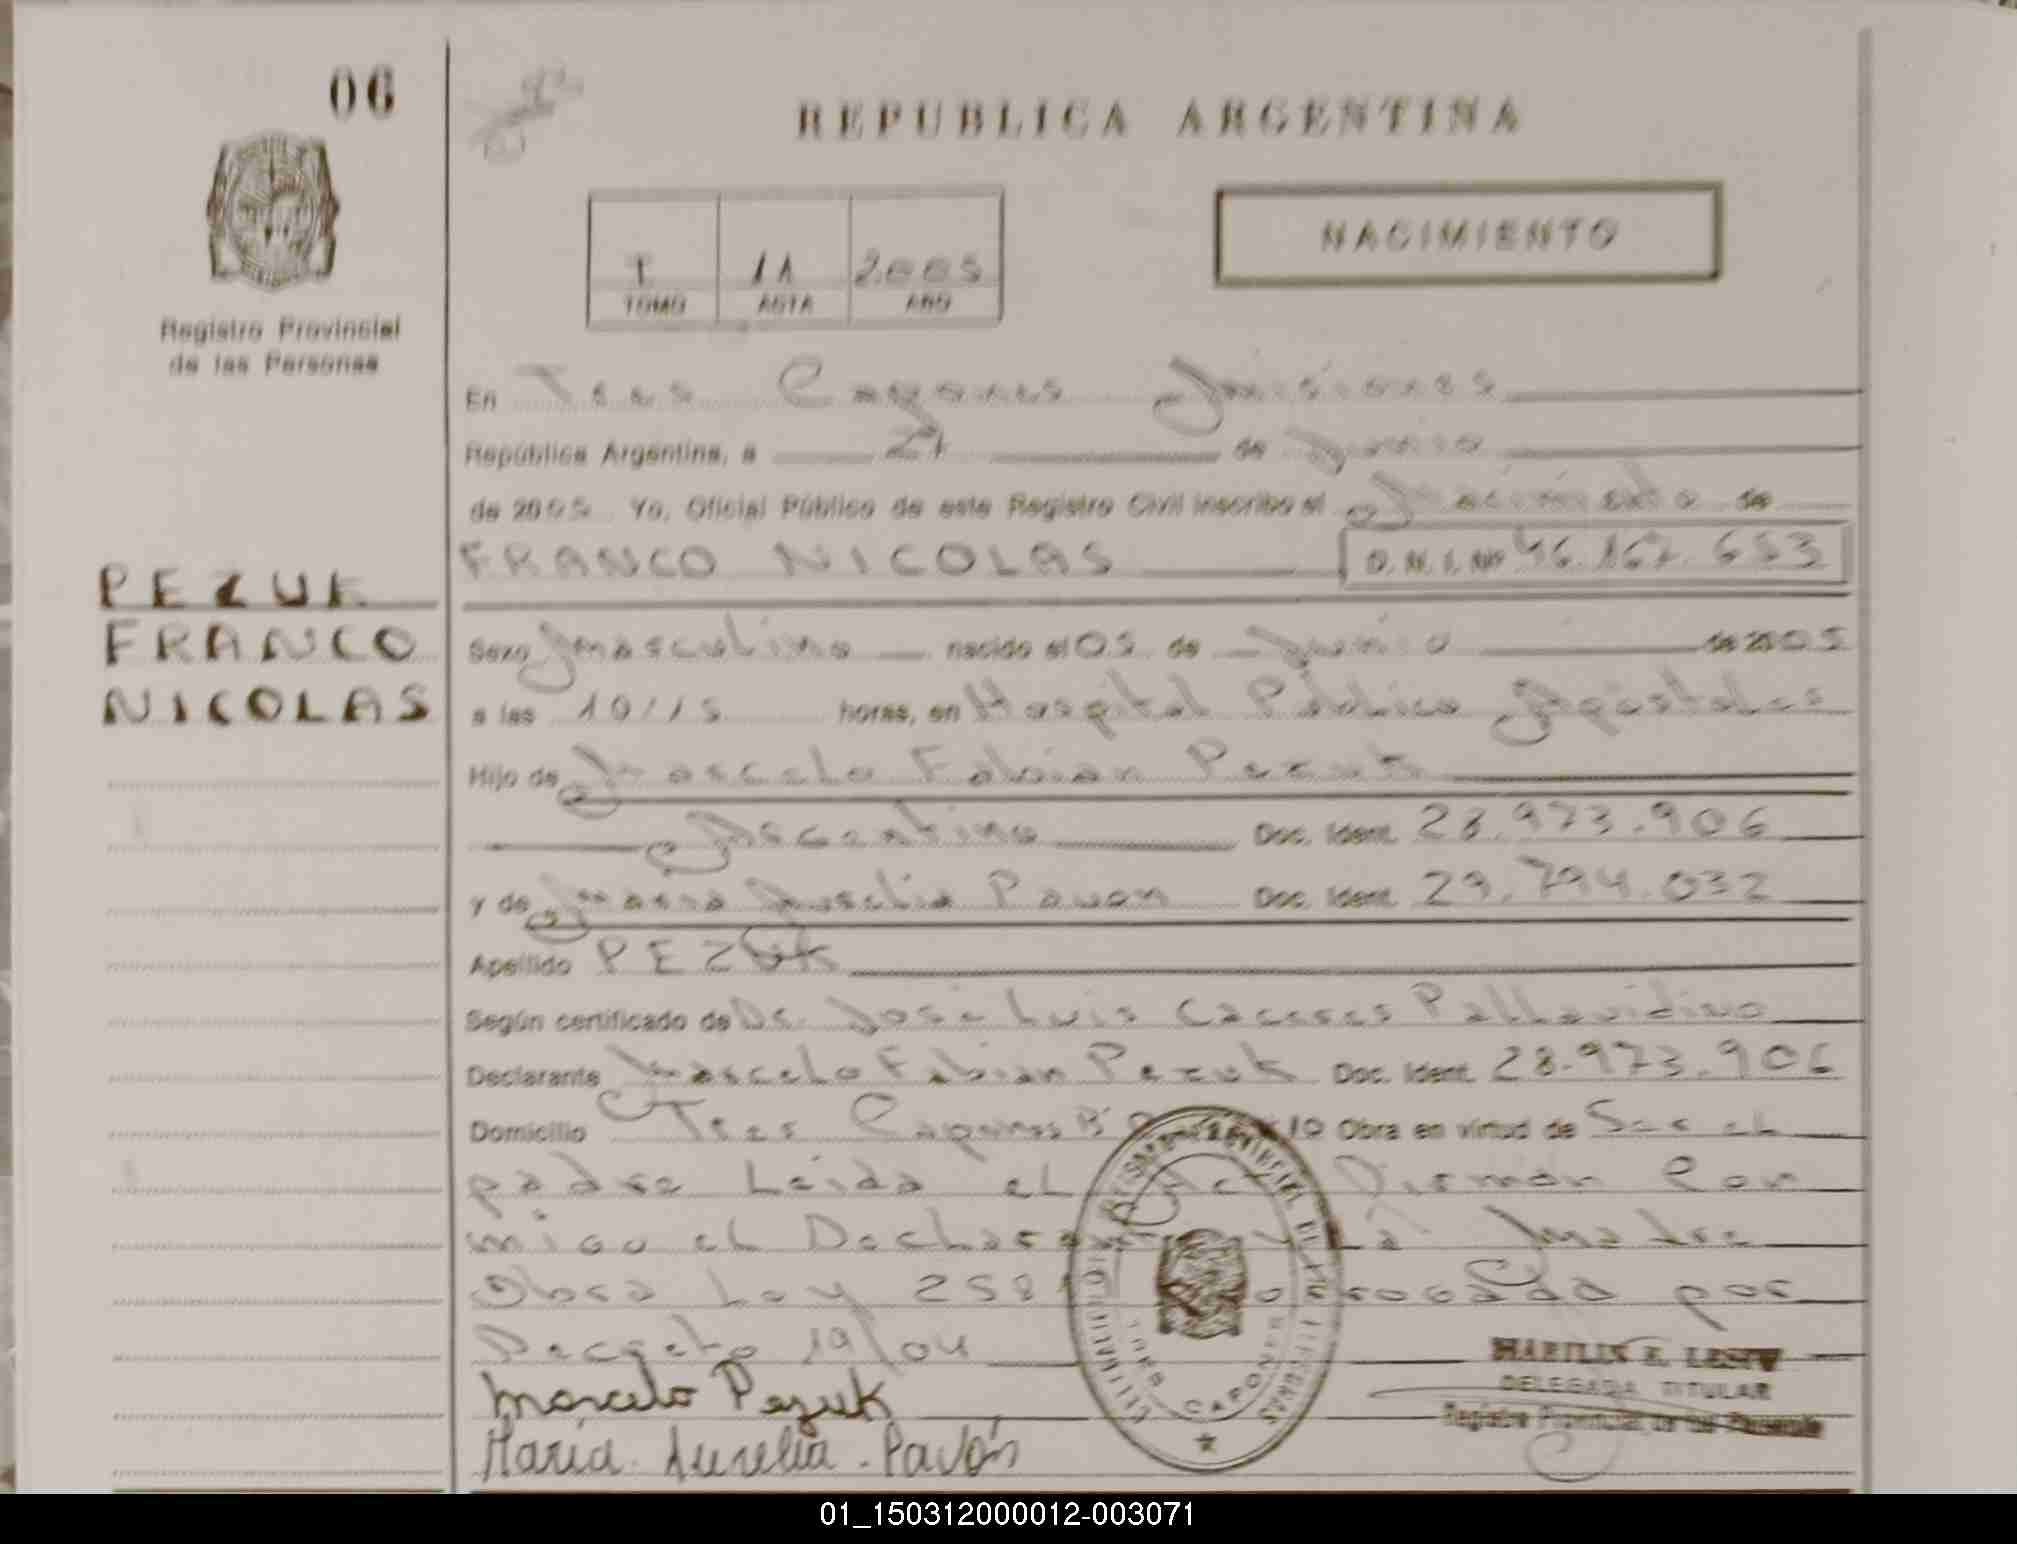 06
REPUBLICA ARGENTINA
NACIMIENTO
I 11 2.005
TOMO ACTA AÑO
Registro Provincial
de las Personas
En Tres Capones Misiones
República Argentina, a 21 de Junio
de 2005 Yo, Oficial Público de este Registro Civil inscribo el Nacimiento de
FRANCO NICOLAS D.N.I.Nº 46.167.653
PEZUK
FRANCO
NICOLAS
Sexo Masculino nacido el 05 de Junio de 2005
a las 10/15 horas, en Hospital Público Apóstoles
Hijo de Marcelo Fabian Pezuk
Argentino Doc. Ident. 28.973.906
y de Maria Aurelia Pavon Doc. Ident. 29.794.032
Apellido PEZUK
Según certificado de Dr. José Luis Caceres Pallavidino
Declarante Marcelo Fabian Pezuk Doc. Ident. 28.973.906
Domicilio Tres Capones Bº 10 Obra en virtud de Ser el
padre Leida el Firman Con
migo el La Madre
Obra Ley por
Decreto 19/04
Marcelo Pezuk
María. Aurelia. Pavón
TRES CAPONES
MARILIN E.
DELEGADA TITULAR
Registro Provincial de las Personas
01_150312000012-003071